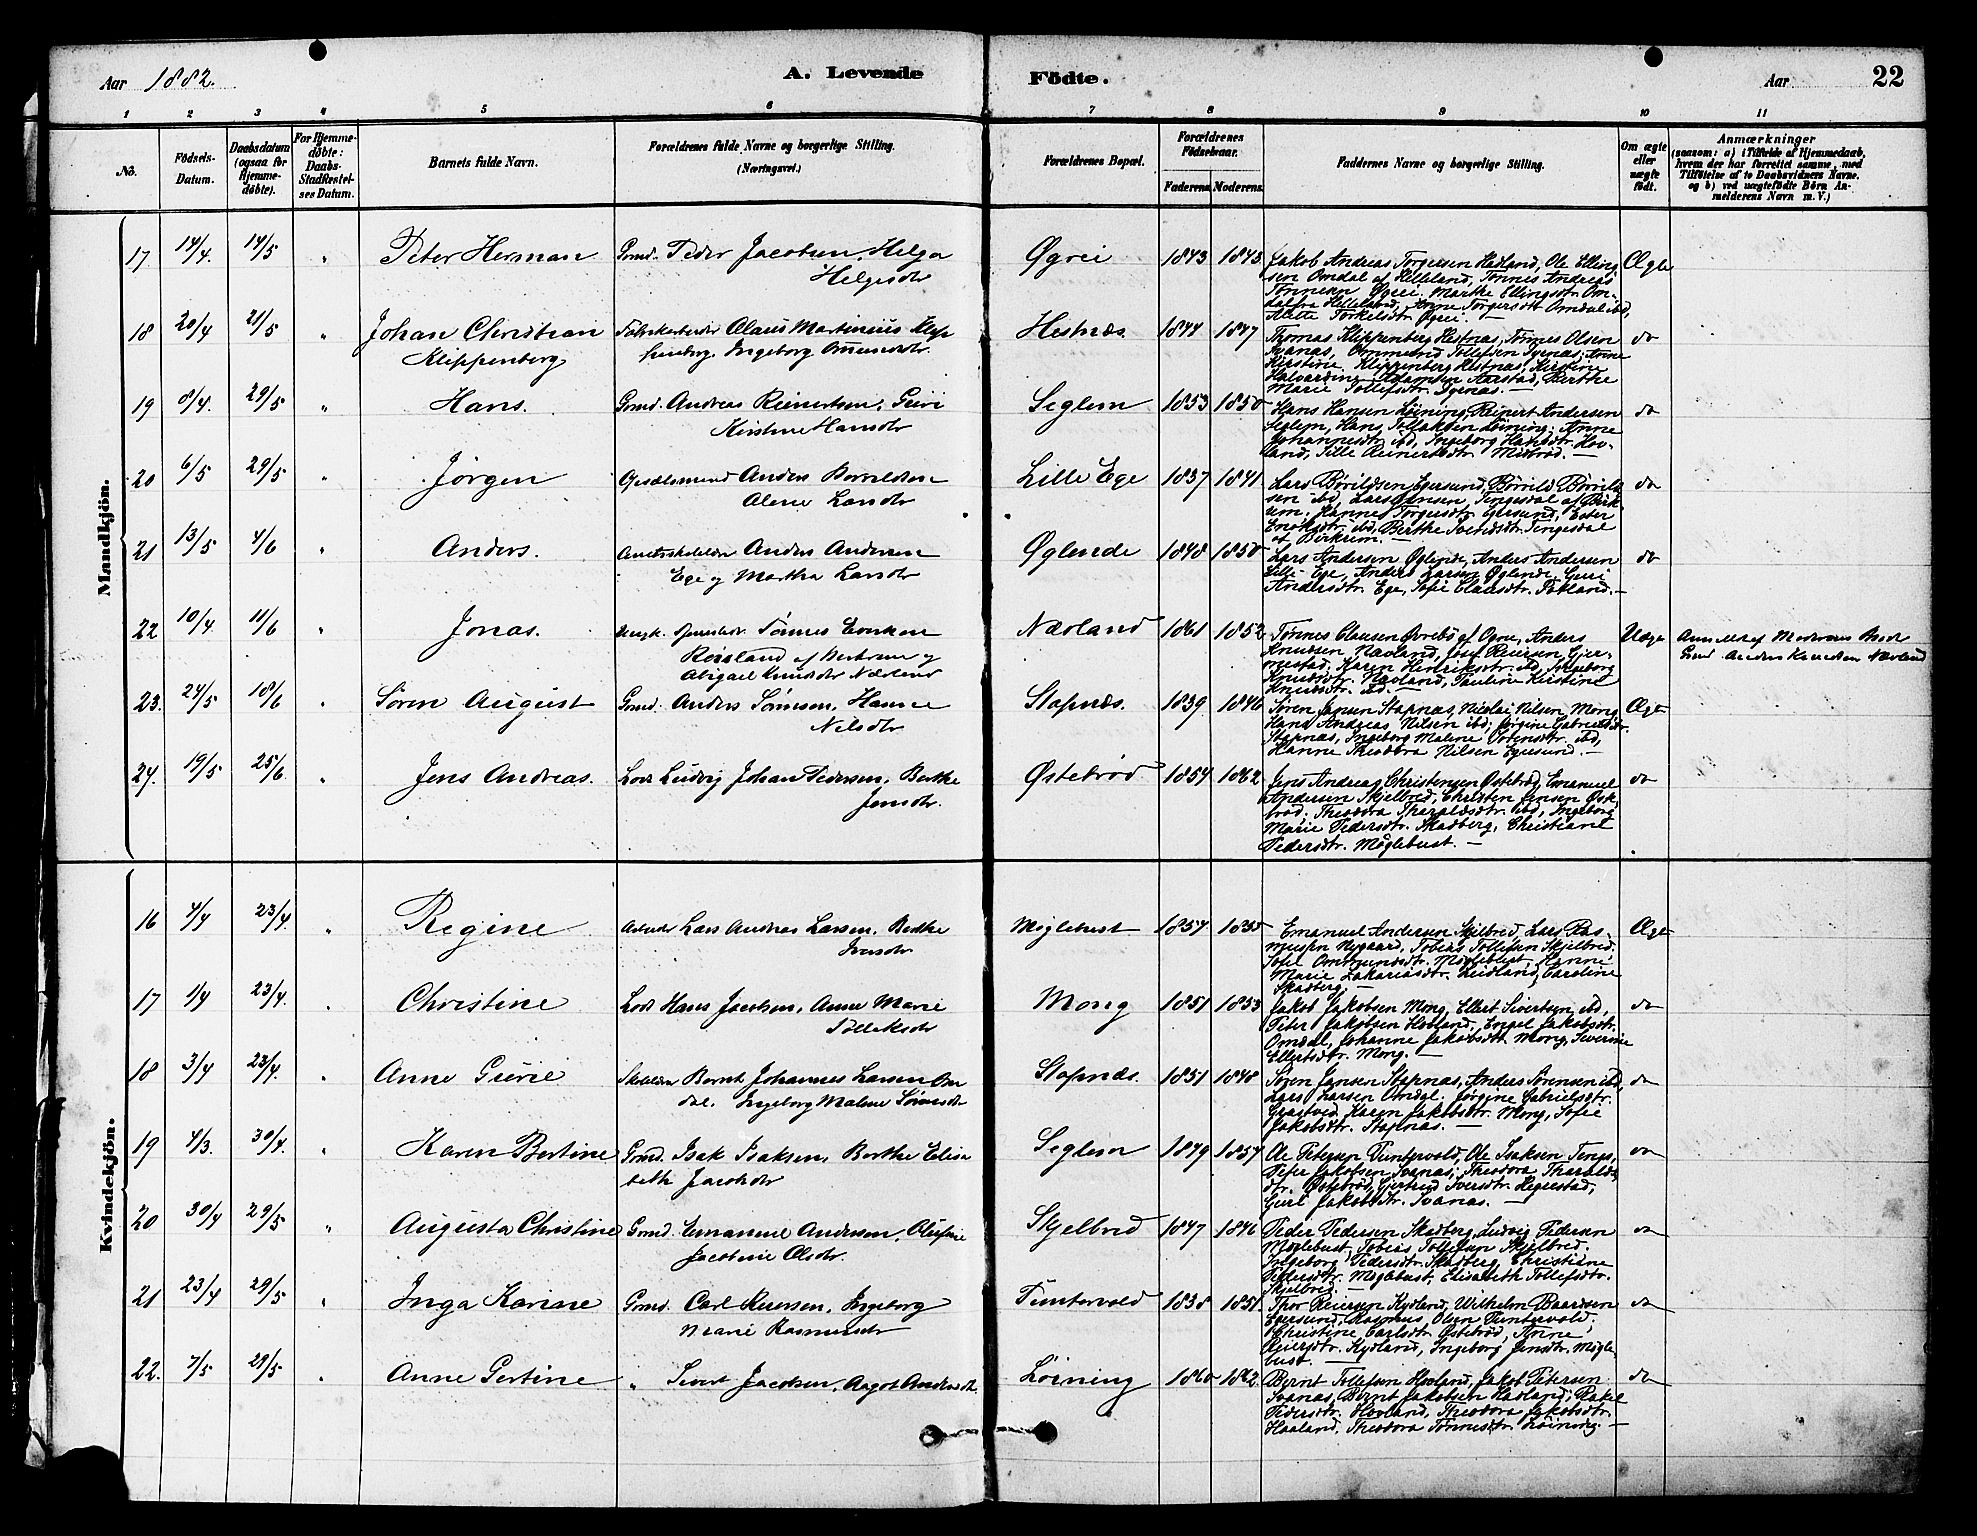 Aar 1882.
A. Levende Födte.
Aar 22
1 2 3 4 5 6 7 8 9 10 11
No.
Födsels-Datum.
Daabsdatum (ogsaa for Hjemme-döbte).
For Hjemme-döbte: Daabs-Stadfæstel-ses Datum.
Barnets fulde Navn.
Forældrenes fulde Navne og borgerlige Stilling. (Næringsvei.)
Forældrenes Bopæl.
Forældrenes Födselsaar.
Faderens. Moderens.
Faddernes Navne og borgerlige Stilling.
Om ægte eller uægte födt.
Anmærkninger
(saasom: a) i Tilfælde af Hjemmedaab,
hvem der har forrettet samme, med
Tilföielse af to Daabsvidners Navne.
og b) ved uægtefödte Börn An-
melderens Navn m. V.)
Mandkjön.
17. 14/4. 14/5 " Peter Herman Grmd. Peder Jacobsen, Helga Helgesdtr Øgrei 1843 1843 Jakob Andreas Torgersen Hadland, Ole Elling-
sen Omdal af Helleland, Tønnes Andreas
Tønnesen Øgrei. Marthe Ellingsdtr. Om-
dal fra Helleland, Anne Torgersdtr Omdal ibd,
Alette Torkelsdtr Øgrei. — Ægte
18 20/4 21/5 " Johan Christian Klippenberg Fabrikarbeider Claus Martinius Klip
penberg, Ingeborg Omundsdtr. Hestnæs. 1844 1847 Thomas Klippenberg Hestnæs, Tønnes Olsen
Svanæs, Ommund Tollefsen Svanæs; Anne
Kirstine Klippenberg Hestnæs, Kirstine
Halvardine Adamsen Aarstad, Berthe
Marie Tollefsdtr. Svanæs. — do
19 8/4. 29/5 " Hans. Grmd. Andreas Reinertsen, Guri
Kirstine Hansdtr Seglem 1853 1850 Hans Hansen Løining, Reinert Andersen
Seglem, Hans Tollaksen Løining; Anne
Johannesdtr. ibd, Ingeborg Hansdtr. Hov-
land, Tille Reinertsdtr. Midbrød. — do
20 6/5 29/5 " Jörgen Opsidsmand Anders Borildsen
Alene Larsdtr Lille Ege 1837 1841 Lars Børildsen Egersund, Børild Børild-
sen ibd, Lars Jensen Tengesdal af Birk-
rem. Hannes Torgersdtr. Egersund, Ester
Enoksdtr. ibd, Berthe Svendsdtr. Tengesdal
af Birkrem. — do
21 13/5 4/6 " Anders. Amtsskolelærer Anders Andersen
Ege og Martha Larsdtr Øglende 1848 1850 Lars Andersen Øglende, Anders Andersen
Lille Ege, Anders Larsen Øglende. Guri
Andersdtr. Ege, Sofie Clausdtr. Potland. — do
22 10/4. 11/6 " Jonas. Ungk. Tønnes Evensen
af og
Abigael Knudsdtr Nævland Nævland 1861 1852 Tønnes Clausen Øvrebø af Ogne, Anders
Knudsen Nævland, Josef Reiersen Gjer-
mestad. Karen Henriksdtr. ibd, Ingeborg
Knudsdtr. Nævland, Pauline Kirstine
Knudsdtr. ibd. — Uægte Anmeldt af Moderens Broder
Grmd. Anders Knudsen Nævland
23. 24/5 18/6 " Søren August Grmd. Anders Sørensen, Hanne
Nilsdtr Stapnæs. 1839 1846 Søren Jansen Stapnæs, Nicolai Nilsen Mong,
Hans Andreas Nilsen ibd; Jørgine Gabrielsdtr.
Stapnæs, Ingeborg Malene Sørensdtr. ibd,
Hanne Theodora Nilsen Egersund. — Ægte
24. 19/5 25/6 " Jens Andreas. Lods Ludvig Johan Pedersen, Berthe
Jensdtr. Østebrød 1854 1862 Jens Andreas Christensen Østebrød, Emanuel
Andersen Skjelbred, Christen Jensen Øste-
brød. Theodora Tharaldsdtr. ibd, Ingeborg
Marie Pedersdtr. Skadberg, Christiane
Pedersdtr. Møglebust. — do
Kvindekjön.
16 4/4 23/4. " Regine Arbeider Lars Andreas Larsen, Berthe
Møglebust 1854 1855 Emanuel Andersen Skjelbred, Lars Ras-
mussen Nygaard, Tobias Tollefsen Skjelbred.
Sofie Ommundsdtr. Møglebust, Hanne
Marie Zakariasdtr. Leidland, Caroline
Skadberg. — Ægte
17 1/4 23/4. " Christine Lods Hans Jacobsen, Anne Marie
Tolleksdtr Mong 1851 1853 Jakob Jakobsen Mong, Ellert Sivertsen ibd,
Peter Jakobsen Hovland, Engel Jakobsdtr.
Omdal, Johanne Jakobsdtr. Mong, Severine
Ellertsdtr. Mong. — do
18 3/4 23/4. " Anne Gurie Skolelærer Bernt Johannes Larsen Om
dal. Ingeborg Malene Sørensdtr Stapnæs. 1851 1848 Søren Jansen Stapnæs, Anders Sørensen ibd,
Lars Larsen Omdal. Jørgine Gabrielsdtr.
Grastveid, Karen Jakobsdtr. Mong, Sofie
Jakobsdtr. Stapnæs. — do
19 4/3. 30/4. " Karen Bertine Grmd. Isak Isaksen, Berthe Elisa
beth Jacobsdtr Seglem 1849 1857 Ole Petersen Puntervold, Ole Isaksen Tengs,
Peter Jakobsen Svanæs; Theodora Tharalds-
dtr. Østebrød, Gjertrud Iversdtr. Hegrestad,
Guri Jakobsdtr. Svanæs. — do
20 30/4 29/5 " Augusta Christine Grmd. Emanuel Andersen, Olufine
Jacobine Olsdtr. Skjelbred 1847 1846 Peder Pedersen Skadberg, Ludvig Pedersen
Møglebust, Tobias Tollefsen Skjelbred.
Ingeborg Pedersdtr. Skadberg, Christiane
Pedersdtr. Møglebust, Elisabeth Tollefsdtr.
Skjelbred. — do
21 23/4 29/5 " Inga Karine Grmd. Carl Reiersen, Ingeborg
Marie Rasmusdtr Puntervold 1838 1851. Thor Reiersen Kydland, Wilhelm Baardsen
Egersund, Rasmus Olsen Puntervold.
Christine Carlsdtr. Østebrød, Anne
Reiersdtr. Kydland, Ingeborg Jensdtr. Mögle-
bust. — do
22. 7/5 29/5 " Anne Gertine " Sivert Jacobsen, Aagot Andersdtr. Löining 1860 1862 Bernt Tollefsen Hovland, Jakob Petersen
Svanæs, Bernt Jakobsen Hovland; Rakel
Pedersdtr. Hovland, Theodora Jakobsdtr.
Haaland, Theodora Tønnesdtr. Løining. — do